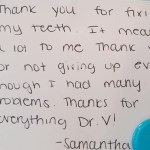 Thank you for fixi
my teeth. It mea
a lot to me Thank
or not giving up ev
hough I had many
roblems. Thanks for
everything Dr. V!
-Samantha